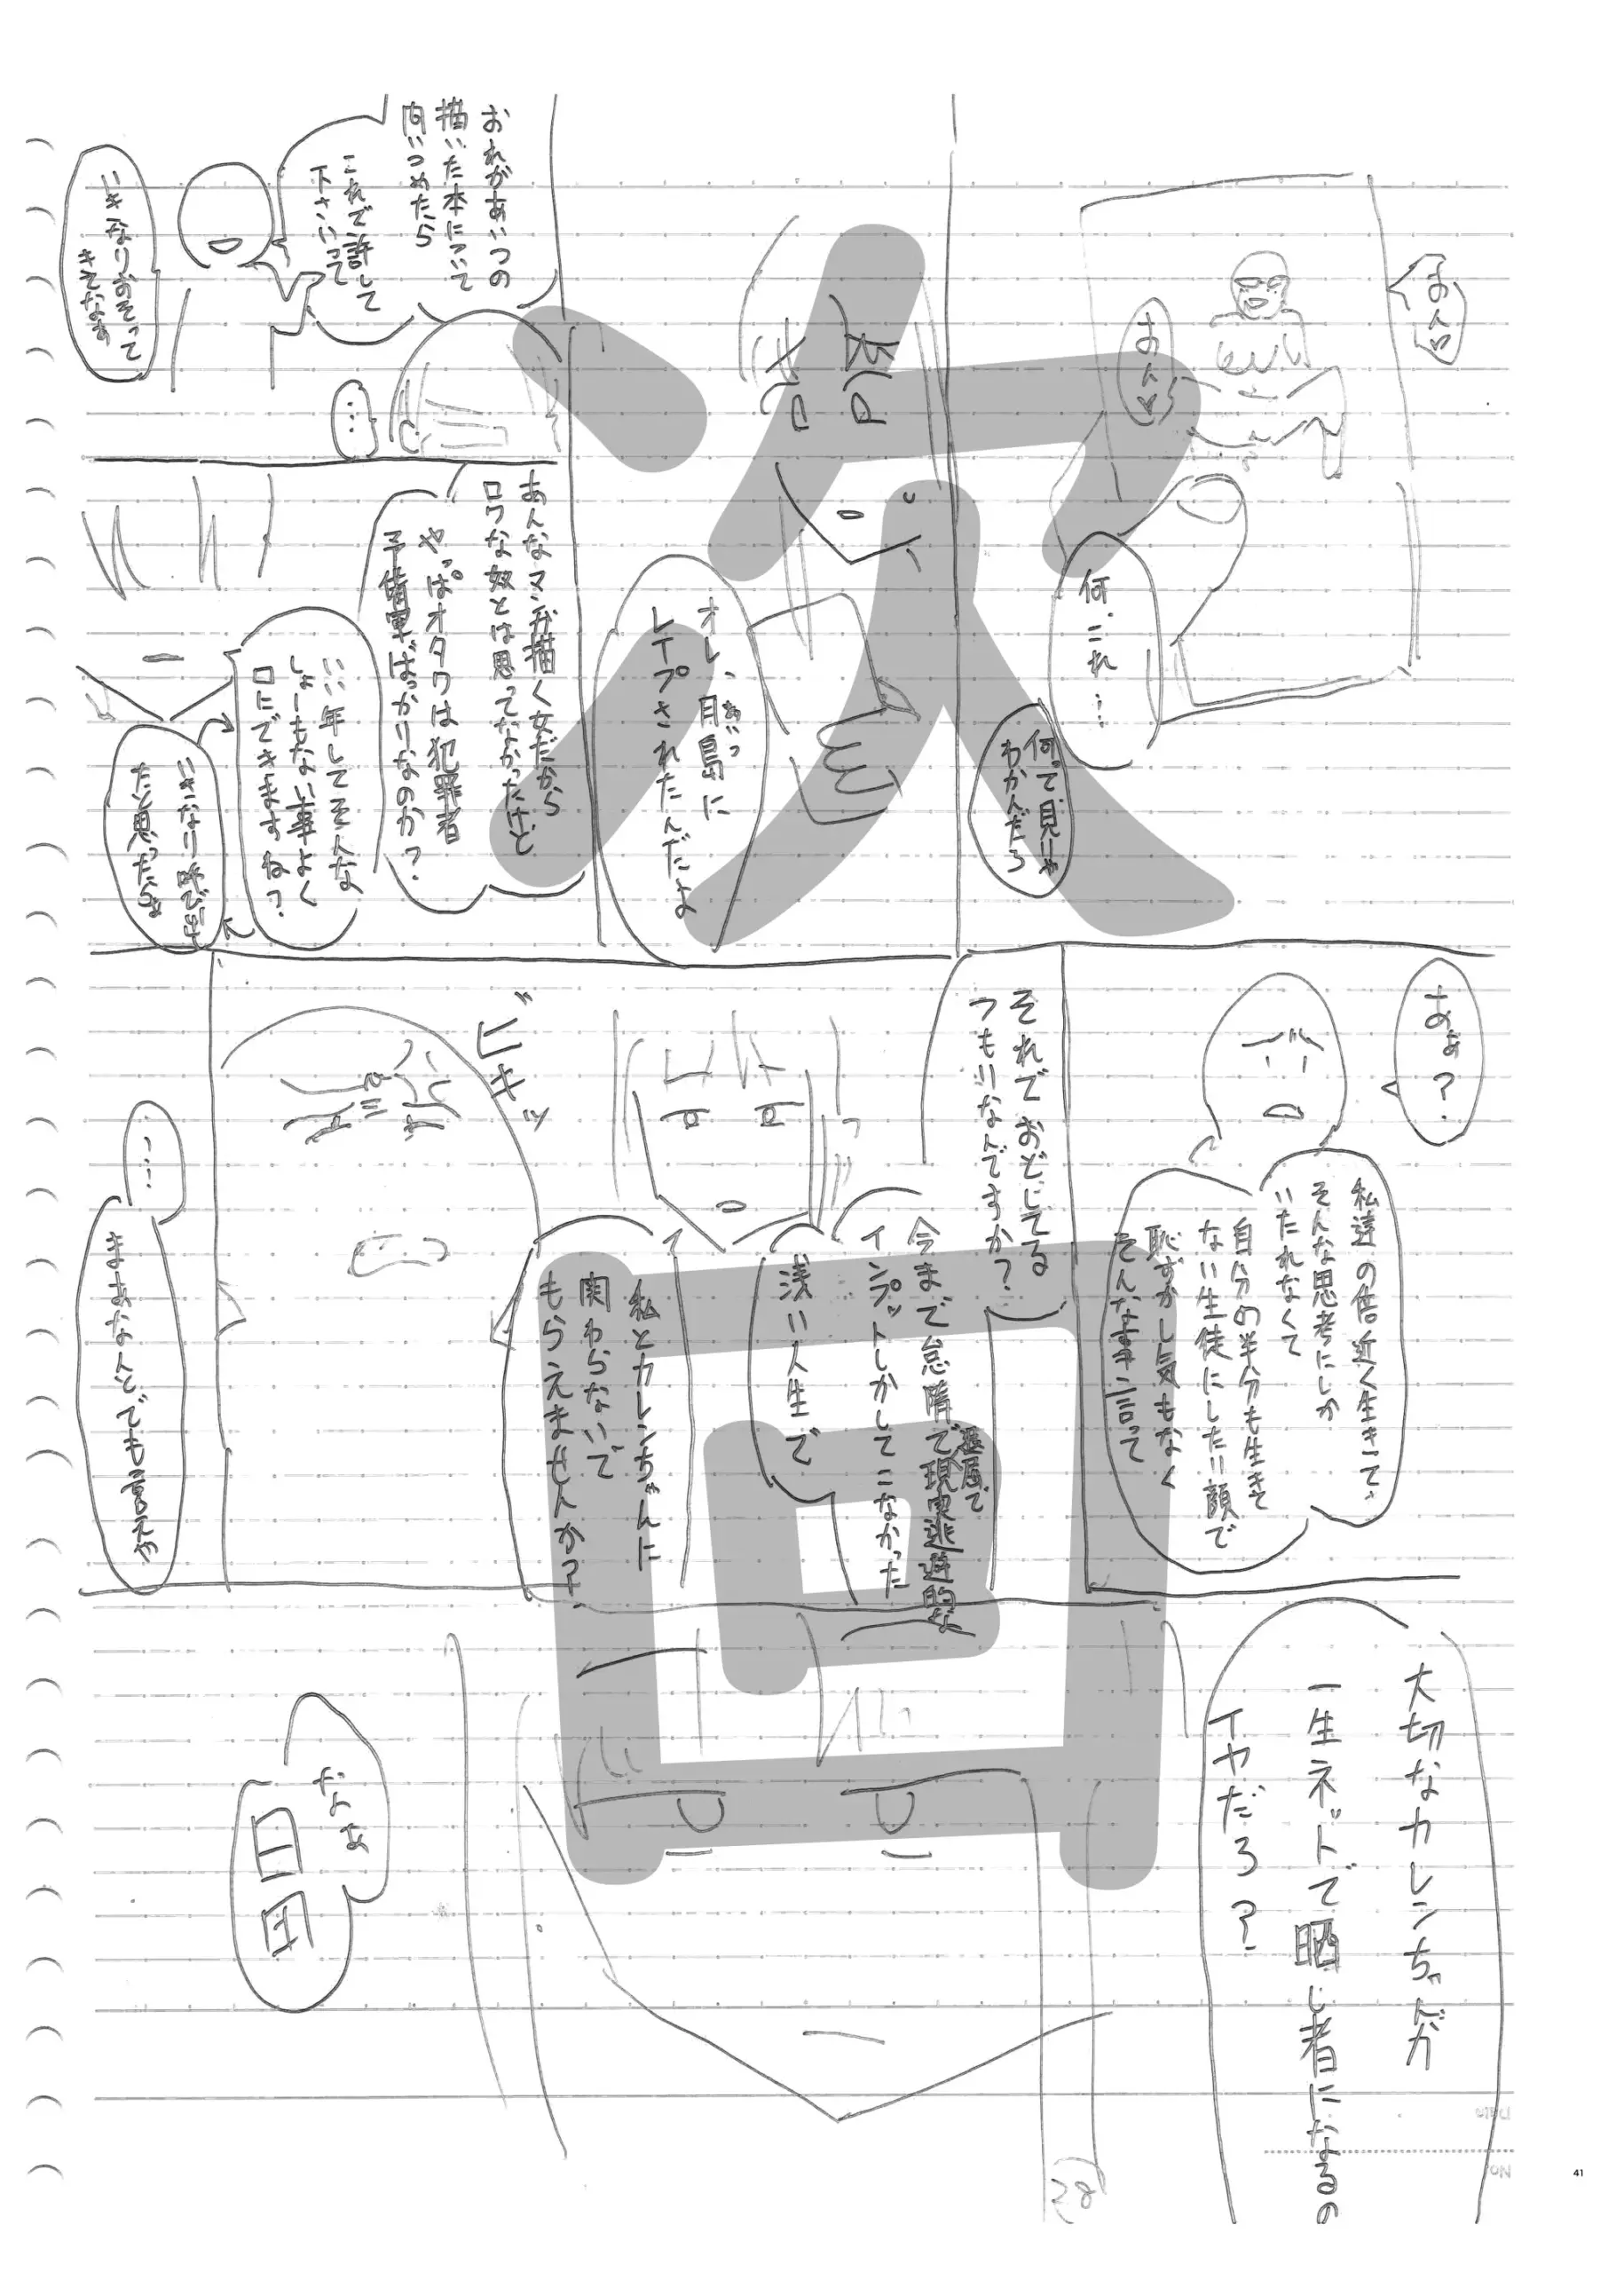 あん♡
あん♡
何、これ…
何って見りゃ
わかんだろ
オレ、月島に
あいつ
レイプされたんだよ
おれがあいつの
描いた本について
問いつめたら
これで許して
下さいって
いきなりおそって
きてなぁ
…
あんなマンガ描く女だから
ロクな奴とは思ってなかったけど
やっぱオタクは犯罪者
予備軍ばっかりなのか？
いい年してそんな
しょーもない事よく
口にできますね？
いきなり呼び出して
だと思ったら
あぁ？
私達の倍近く生きてて
そんな思考にしか
いたれなくて
自分の半分も生きて
ない生徒にしたり顔で
恥ずかし気もなく
そんな事言って
それでおどしてる
つもりなんですか？
今まで怠惰で退屈で現実逃避的な
インプットしかしてこなかった
浅い人生で
私とカレンちゃんに
関わらないで
もらえませんか？
ビキッ
…
まぁなんとでも言えや
大切なカレンちゃんが
一生ネットで晒し者になるの
イヤだろ？
なぁ
日田
次回
38
No.
41